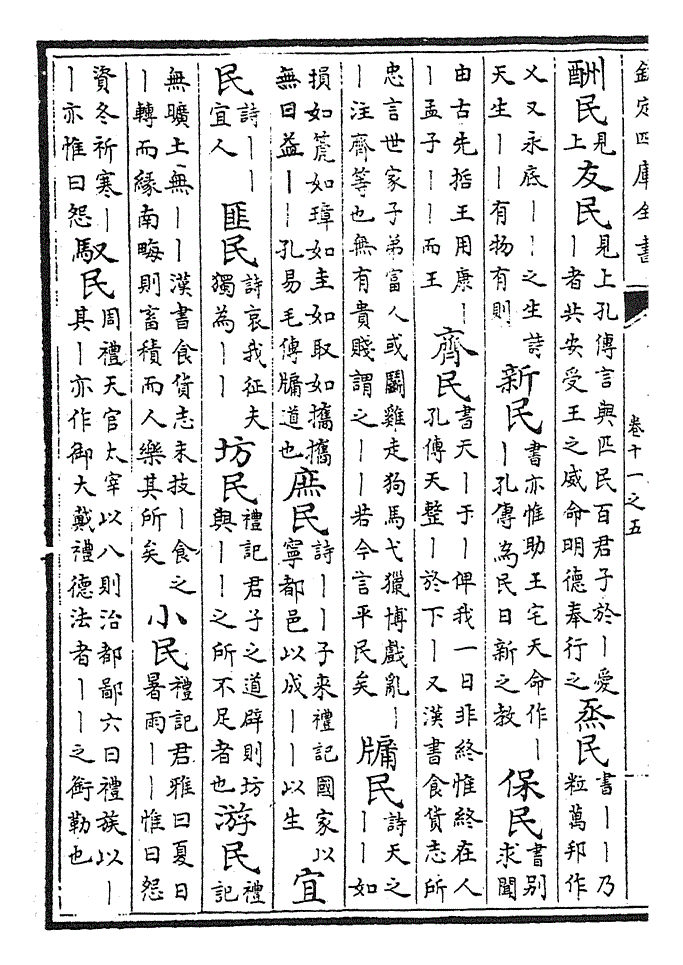 欽定四庫全書 卷十一之五
酬民見上友民見上孔傳言與匹民百君子於丨愛丨者共安受王之威命明德奉行之烝民書丨丨乃粒萬邦作
乂又永底丨丨之生詩天生丨丨有物有則新民書亦惟助王宅天命作丨丨孔傳為民日新之教保民書别求聞
由古先哲王用康丨丨孟子丨丨而王齊民書天丨于丨俾我一日非終惟終在人孔傳天整丨於下丨又漢書食貨志所
忠言世家子弟富人或鬭雞走狗馬弋獵博戲亂丨丨注齊等也無有貴賤謂之丨丨若今言平民矣牖民詩天之丨丨如
損如箎如璋如圭如取如攜攜無曰益丨丨孔易毛傳牖道也庶民詩丨丨子來禮記國家以寧都邑以成丨丨以生宜
民詩丨丨宜人匪民詩哀我征夫獨為丨丨坊民禮記君子之道辟則坊與丨丨之所不足者也游民禮記
無曠土無丨丨漢書食貨志末技丨食之丨轉而緣南畮則畜積而人樂其所矣小民禮記君雅曰夏日暑雨丨丨惟曰怨
資冬祈寒丨丨亦惟曰怨馭民周禮天官太宰以八則治都鄙六曰禮族以丨其丨亦作御大戴禮德法者丨丨之銜勒也